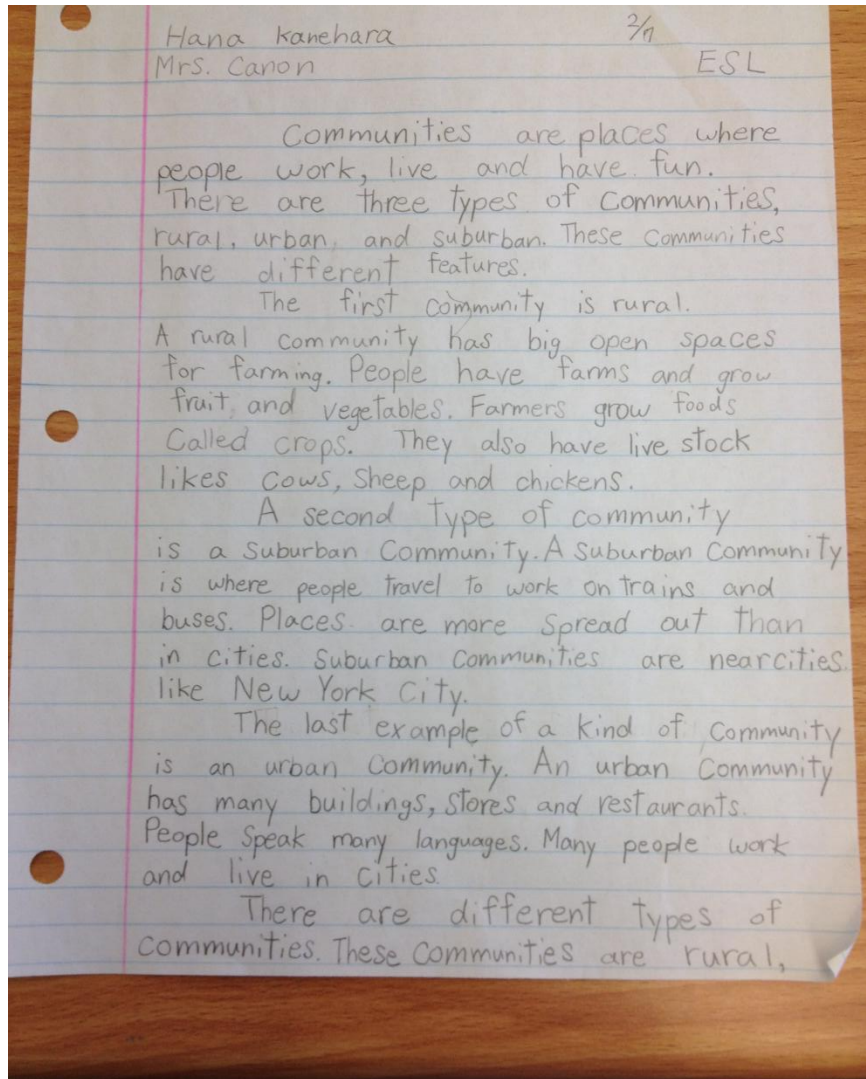 Hana Kanehara
Mrs. Canon ESL
Communities are places where
people work, live and have fun.
There are three types of Communities,
rural, urban, and suburban. These Communities
have different features.
The first community is rural.
A rural community has big open spaces
for farming. People have farms and grow
fruit, and vegetables. Farmers grow foods
Called crops. They also have live stock
likes Cows, Sheep and chickens.
A second type of community
is a Suburban Community. A Suburban Community
is where people travel to work on trains and
buses. Places are more Spread out than
in cities. Suburban Communities are near cities
like New York City.
The last example of a kind of Community
is an urban Community. An urban Community
has many buildings, Stores and restaurants.
People Speak many languages. Many people work
and live in Cities
There are different types of
Communities. These Communities are rural,